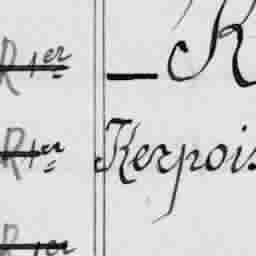 R 1er — K
R 1er Kerpois
R 1er